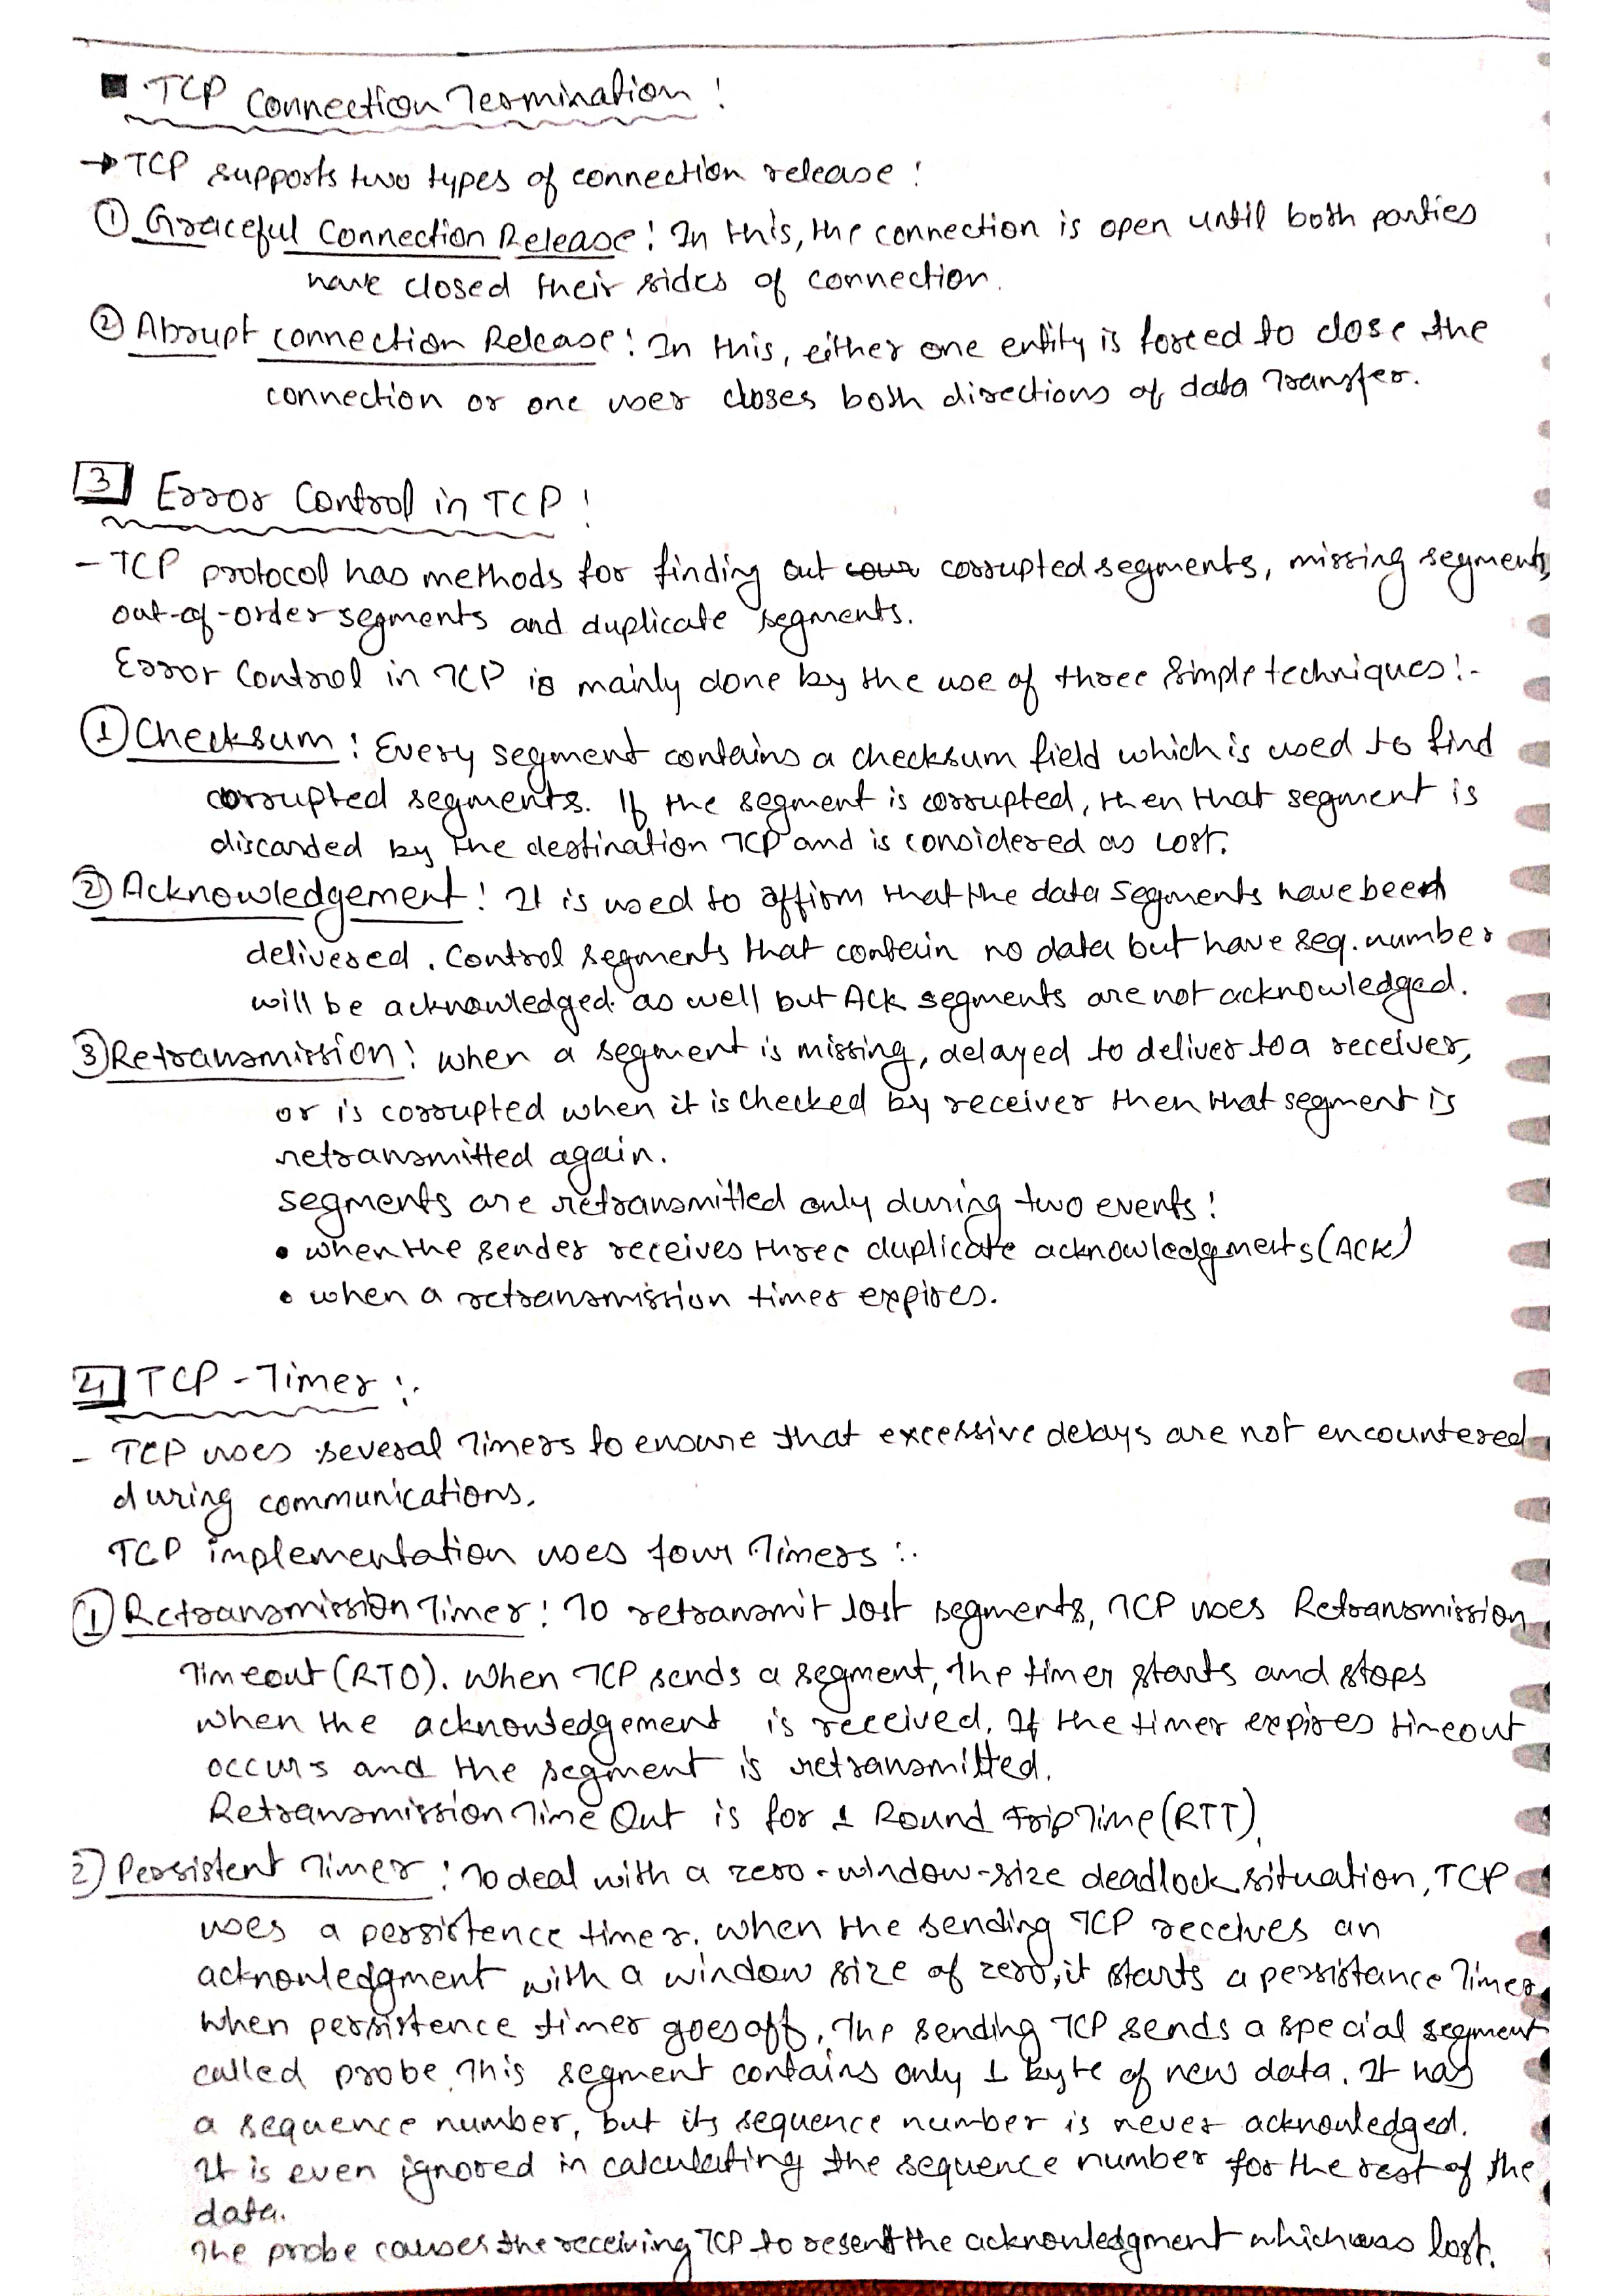 ■ TCP Connection Termination :
→ TCP supports two types of connection release :
① Graceful Connection Release : In this, the connection is open until both parties
have closed their sides of connection.
② Abrupt connection Release : In this, either one entity is forced to close the
connection or one user closes both directions of data transfer.
3 Error Control in TCP :
- TCP protocol has methods for finding out corrupted segments, missing segments,
out-of-order segments and duplicate segments.
Error Control in TCP is mainly done by the use of three simple techniques :-
① Checksum : Every segment contains a checksum field which is used to find
corrupted segments. If the segment is corrupted, then that segment is
discarded by the destination TCP and is considered as lost.
② Acknowledgement : It is used to affirm that the data segments have been
delivered. Control segments that contain no data but have seq. number
will be acknowledged as well but Ack segments are not acknowledged.
③ Retransmission : when a segment is missing, delayed to deliver to a receiver,
or is corrupted when it is checked by receiver then that segment is
retransmitted again.
segments are retransmitted only during two events :
• when the sender receives three duplicate acknowledgments (ACK)
• when a retransmission timer expires.
4 TCP - Timer :.
- TCP uses several Timers to ensure that excessive delays are not encountered
during communications.
TCP implementation uses four Timers :.
① Retransmission Timer : To retransmit lost segments, TCP uses Retransmission
Timeout (RTO). When TCP sends a segment, the timer starts and stops
when the acknowledgement is received. If the timer expires timeout
occurs and the segment is retransmitted.
Retransmission Time Out is for 1 Round Trip Time (RTT).
2) Persistent Timer : To deal with a zero-window-size deadlock situation, TCP
uses a persistence timer. when the sending TCP receives an
acknowledgment with a window size of zero, it starts a persistance Timer
when persistence timer goes off, the sending TCP sends a special segment
called probe. This segment contains only 1 byte of new data. It has
a sequence number, but its sequence number is never acknowledged.
It is even ignored in calculating the sequence number for the rest of the
data.
The probe causes the receiving TCP to resent the acknowledgment which was lost.